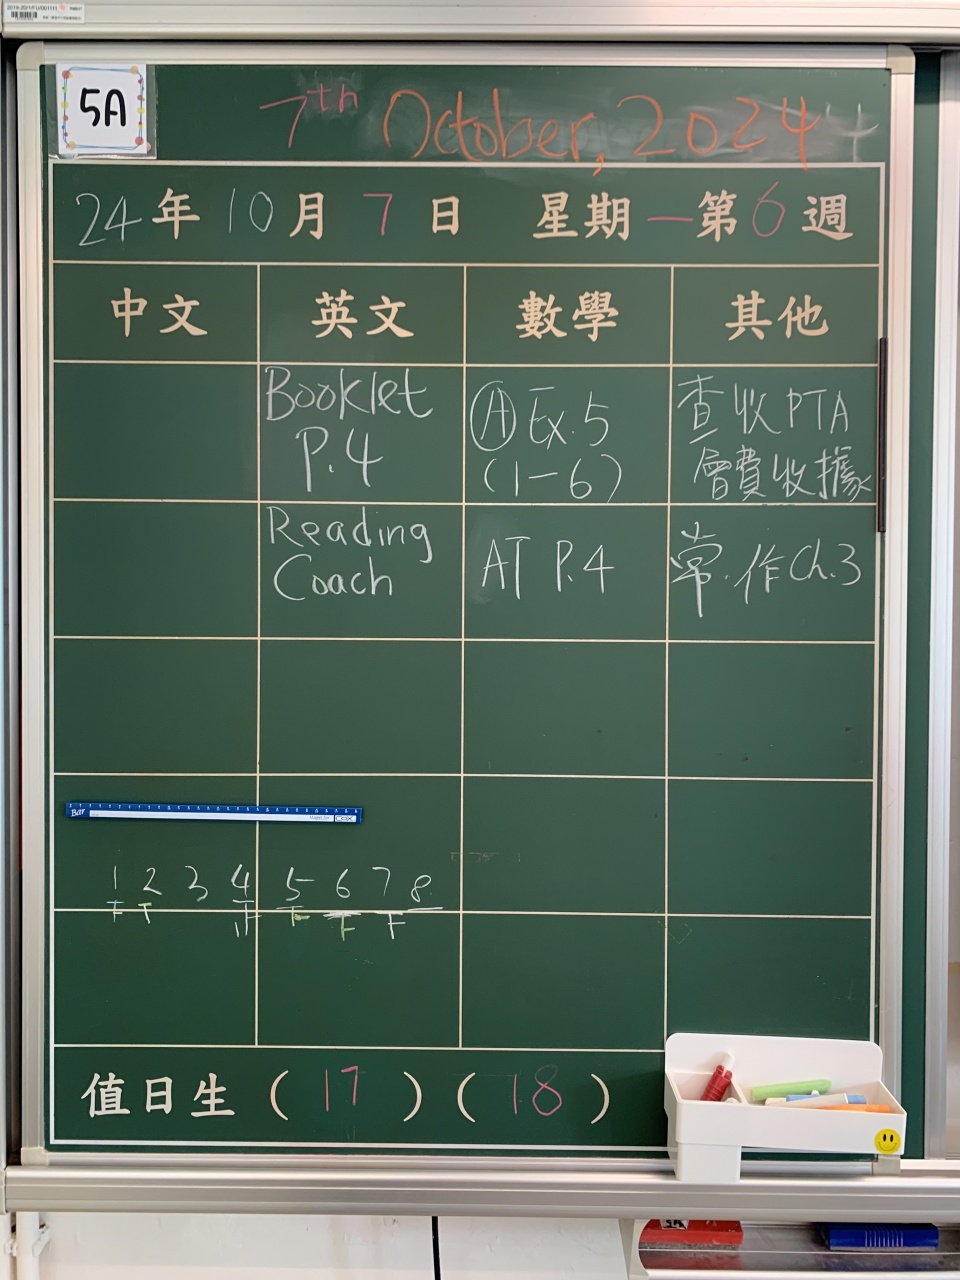 5A
7th October, 2024
24年10月7日 星期一第6週
中文 英文 數學 其他
Booklet
P.4
Ⓐ Ex.5
(1-6)
查收PTA
會費收據
Reading
Coach
AT P.4
常.作Ch.3
Bar
1 2 3 4 5 6 7 8
值日生 ( 17 ) ( 18 )